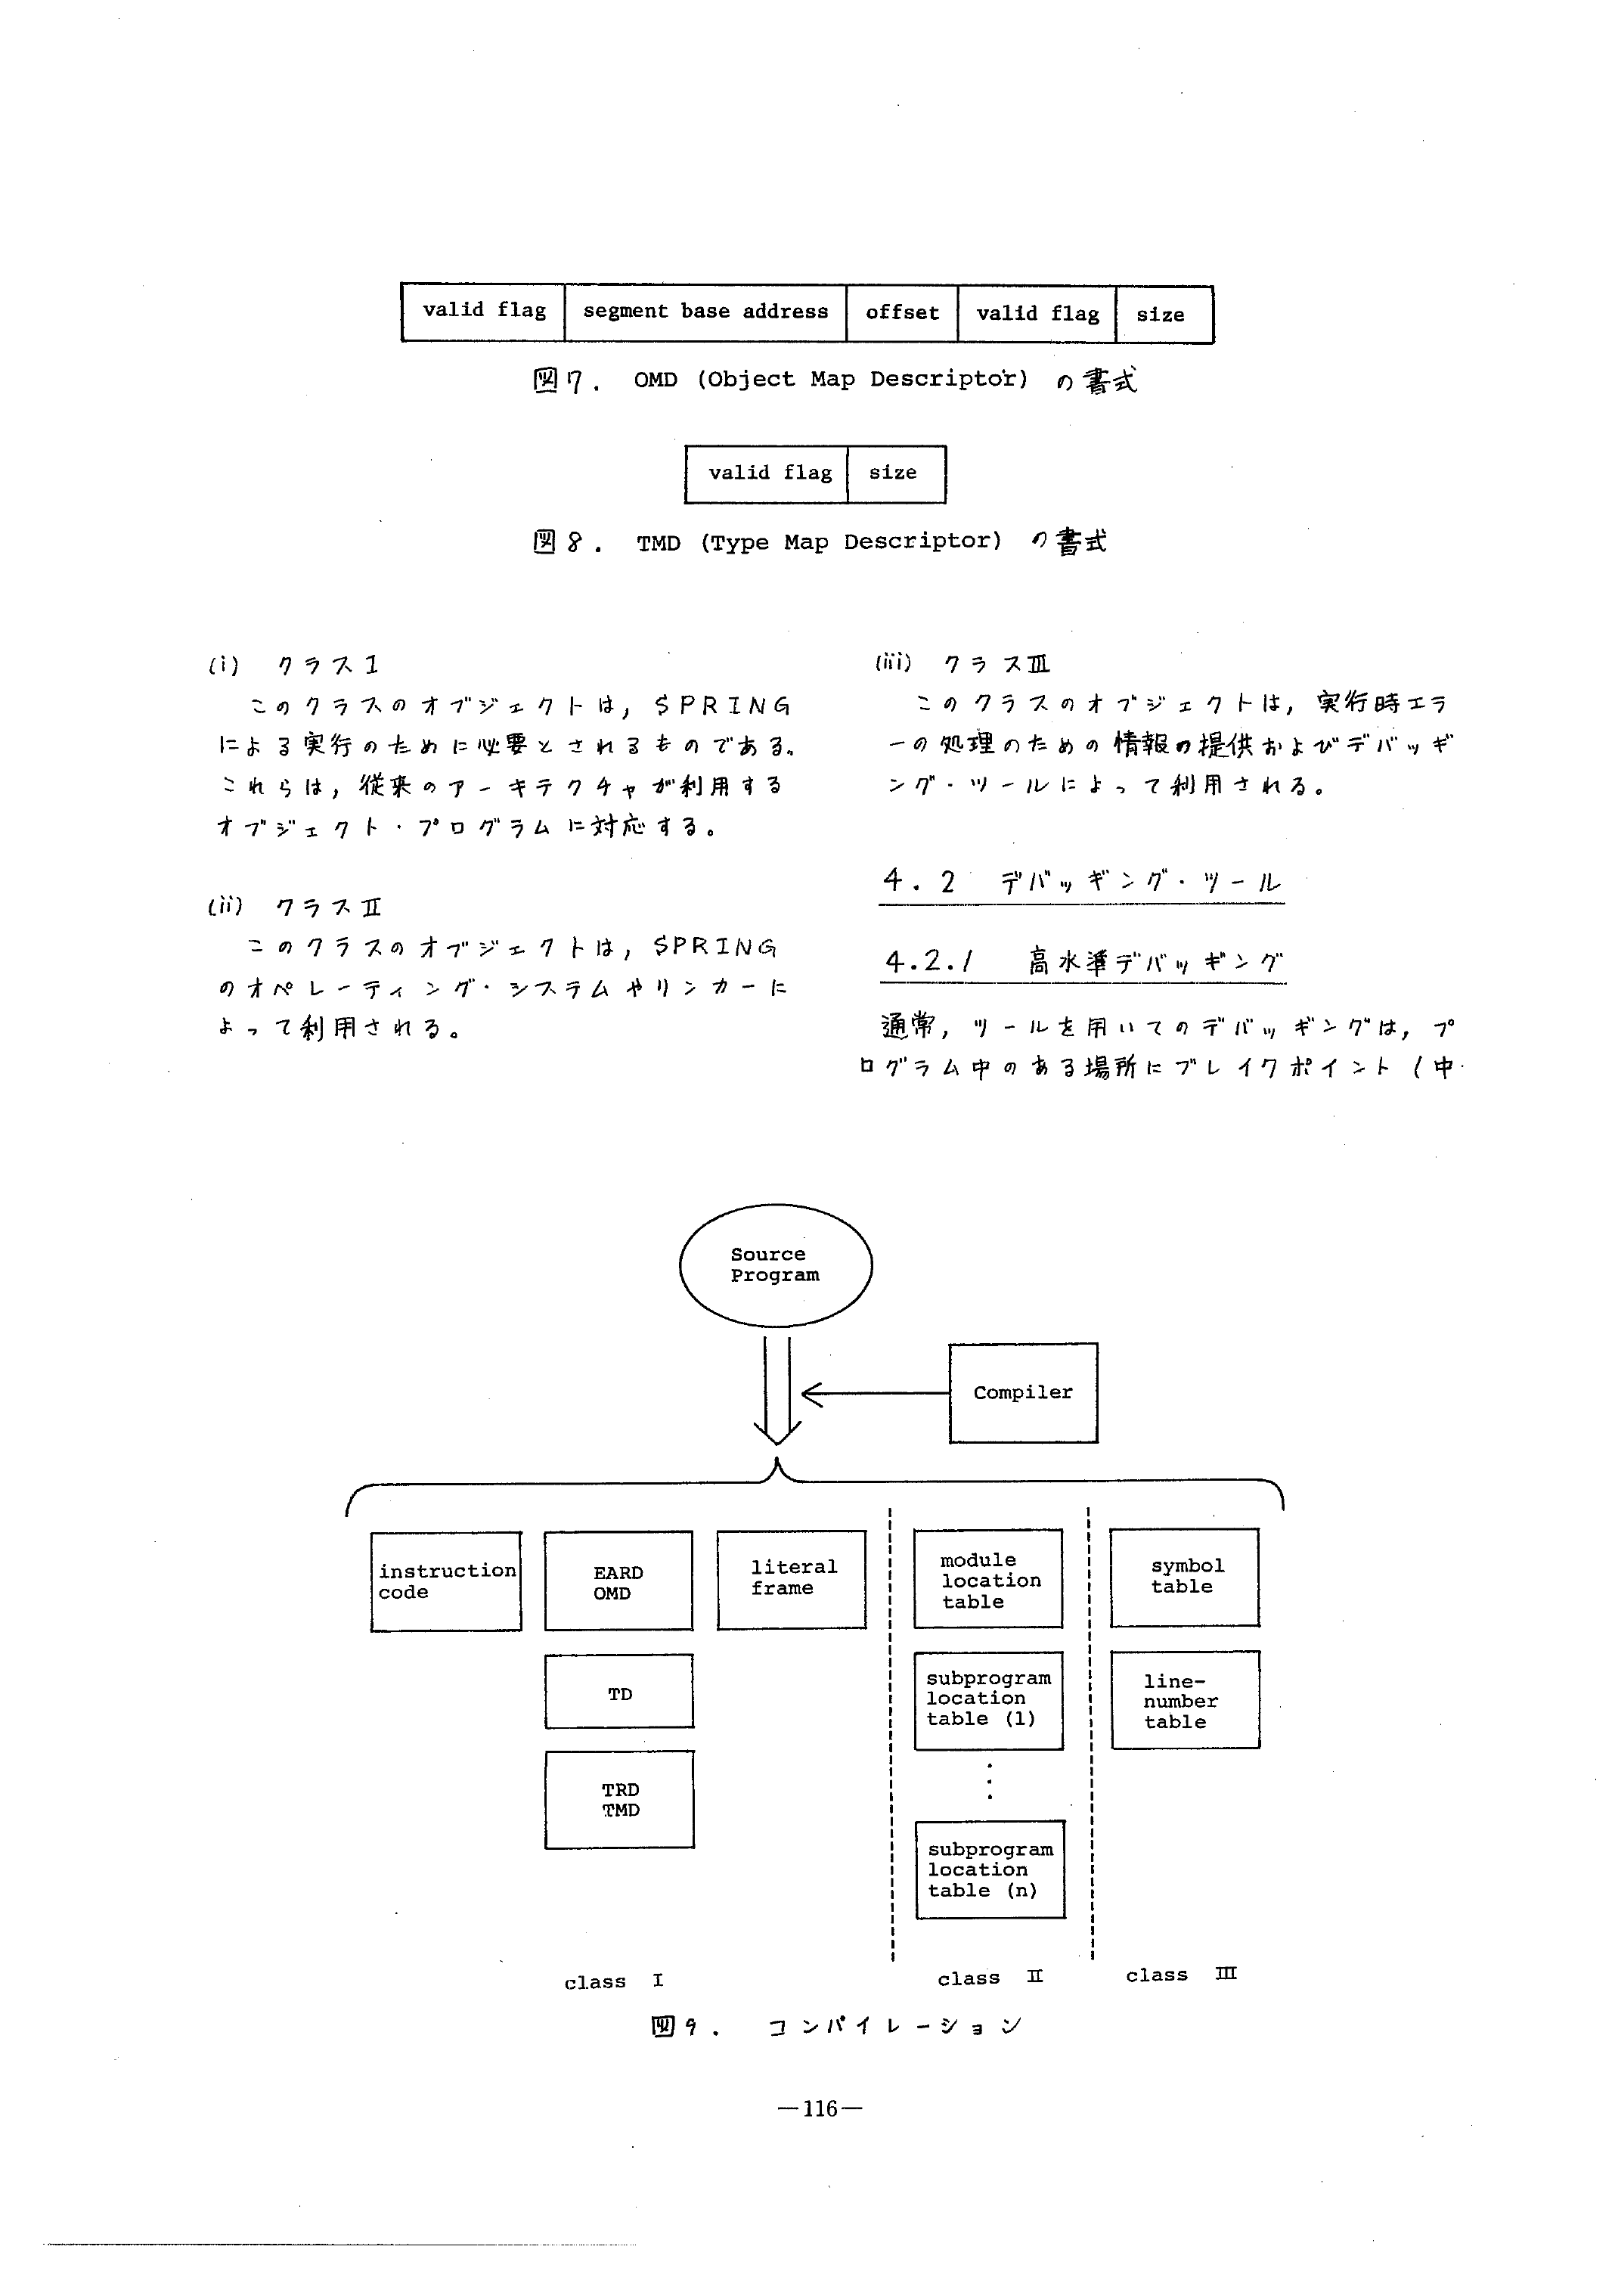 valid flag segment base address offset valid flag size
図7. OMD (Object Map Descriptor) の書式
valid flag size
図8. TMD (Type Map Descriptor) の書式
(i) クラスI
このクラスのオブジェクトは, SPRING
による実行のために必要とされるものである。
これらは, 従来のアーキテクチャが利用する
オブジェクト・プログラムに対応する。
(ii) クラスII
このクラスのオブジェクトは, SPRING
のオペレーティング・システムやリンカーに
よって利用される。
(iii) クラスIII
このクラスのオブジェクトは, 実行時エラ
ーの処理のための情報の提供およびデバッギ
ング・ツールによって利用される。
4.2 デバッギング・ツール
4.2.1 高水準デバッギング
通常, ツールを用いてのデバッギングは, プ
ログラム中のある場所にブレイクポイント (中
Source
Program
Compiler
instruction
code
EARD
OMD
literal
frame
module
location
table
symbol
table
TD
subprogram
location
table (1)
line-
number
table
TRD
TMD
subprogram
location
table (n)
class I
class II
class III
図9. コンパイレーション
—116—